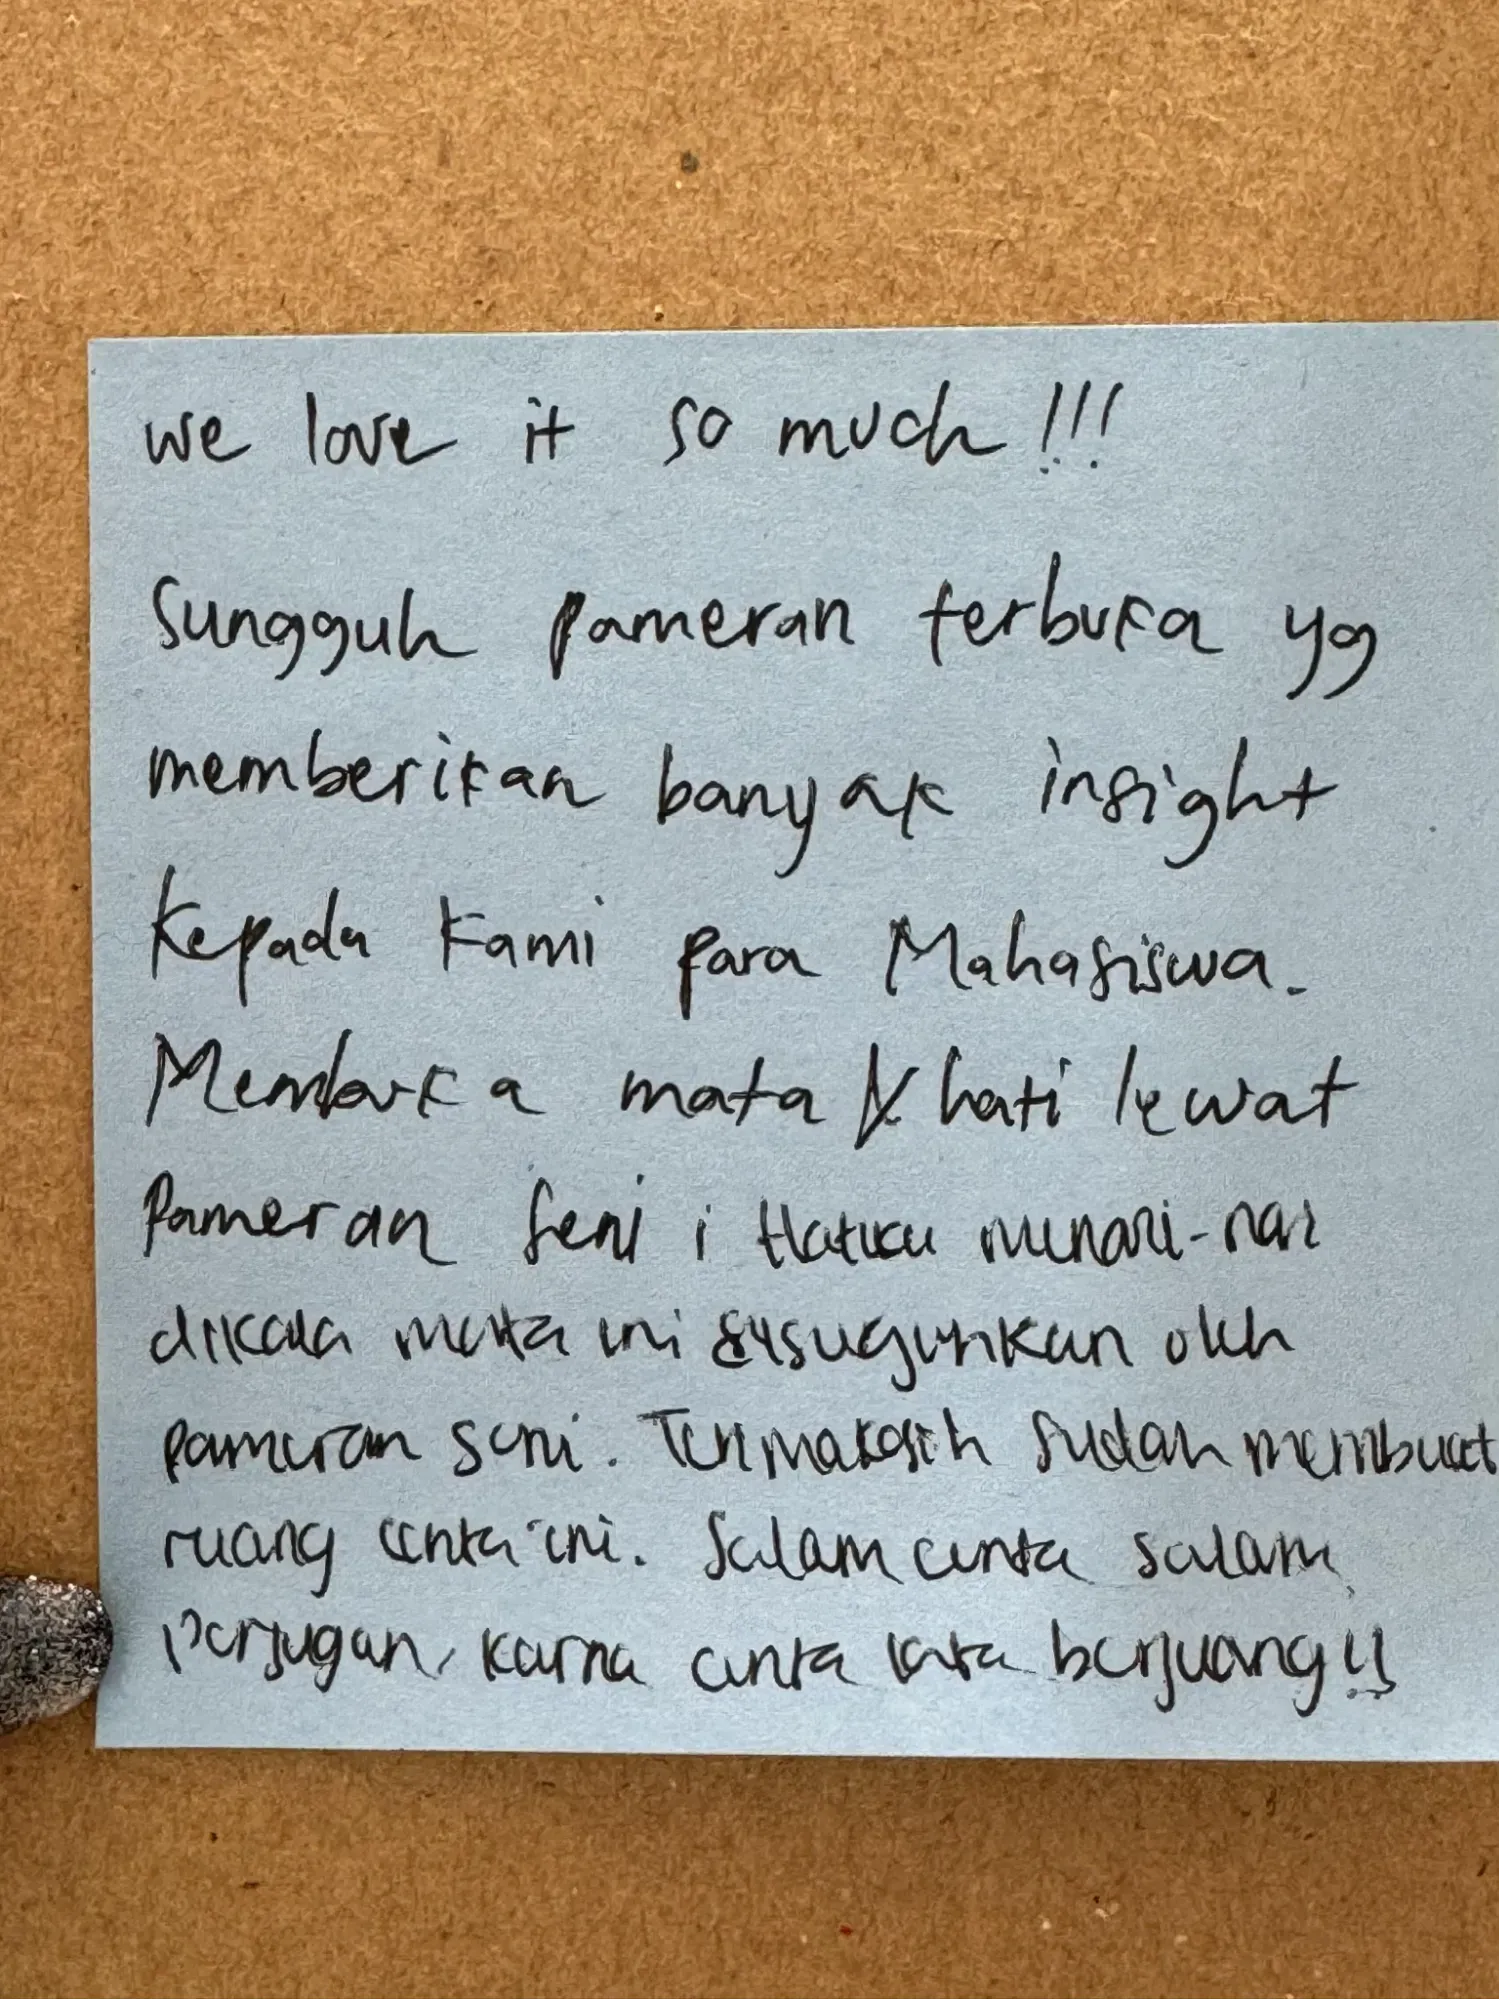 we love it so much !!!
Sungguh pameran terbuka yg
memberikan banyak insight
kepada kami para Mahasiswa.
Membuka mata & hati lewat
Pameran Seni ; Hatiku menari-nari
dikala mata ini disuguhkan oleh
pameran seni. Terimakasih sudah membuat
ruang cinta ini. Salam cinta salam
perjugan, karna cinta kata berjuang!!